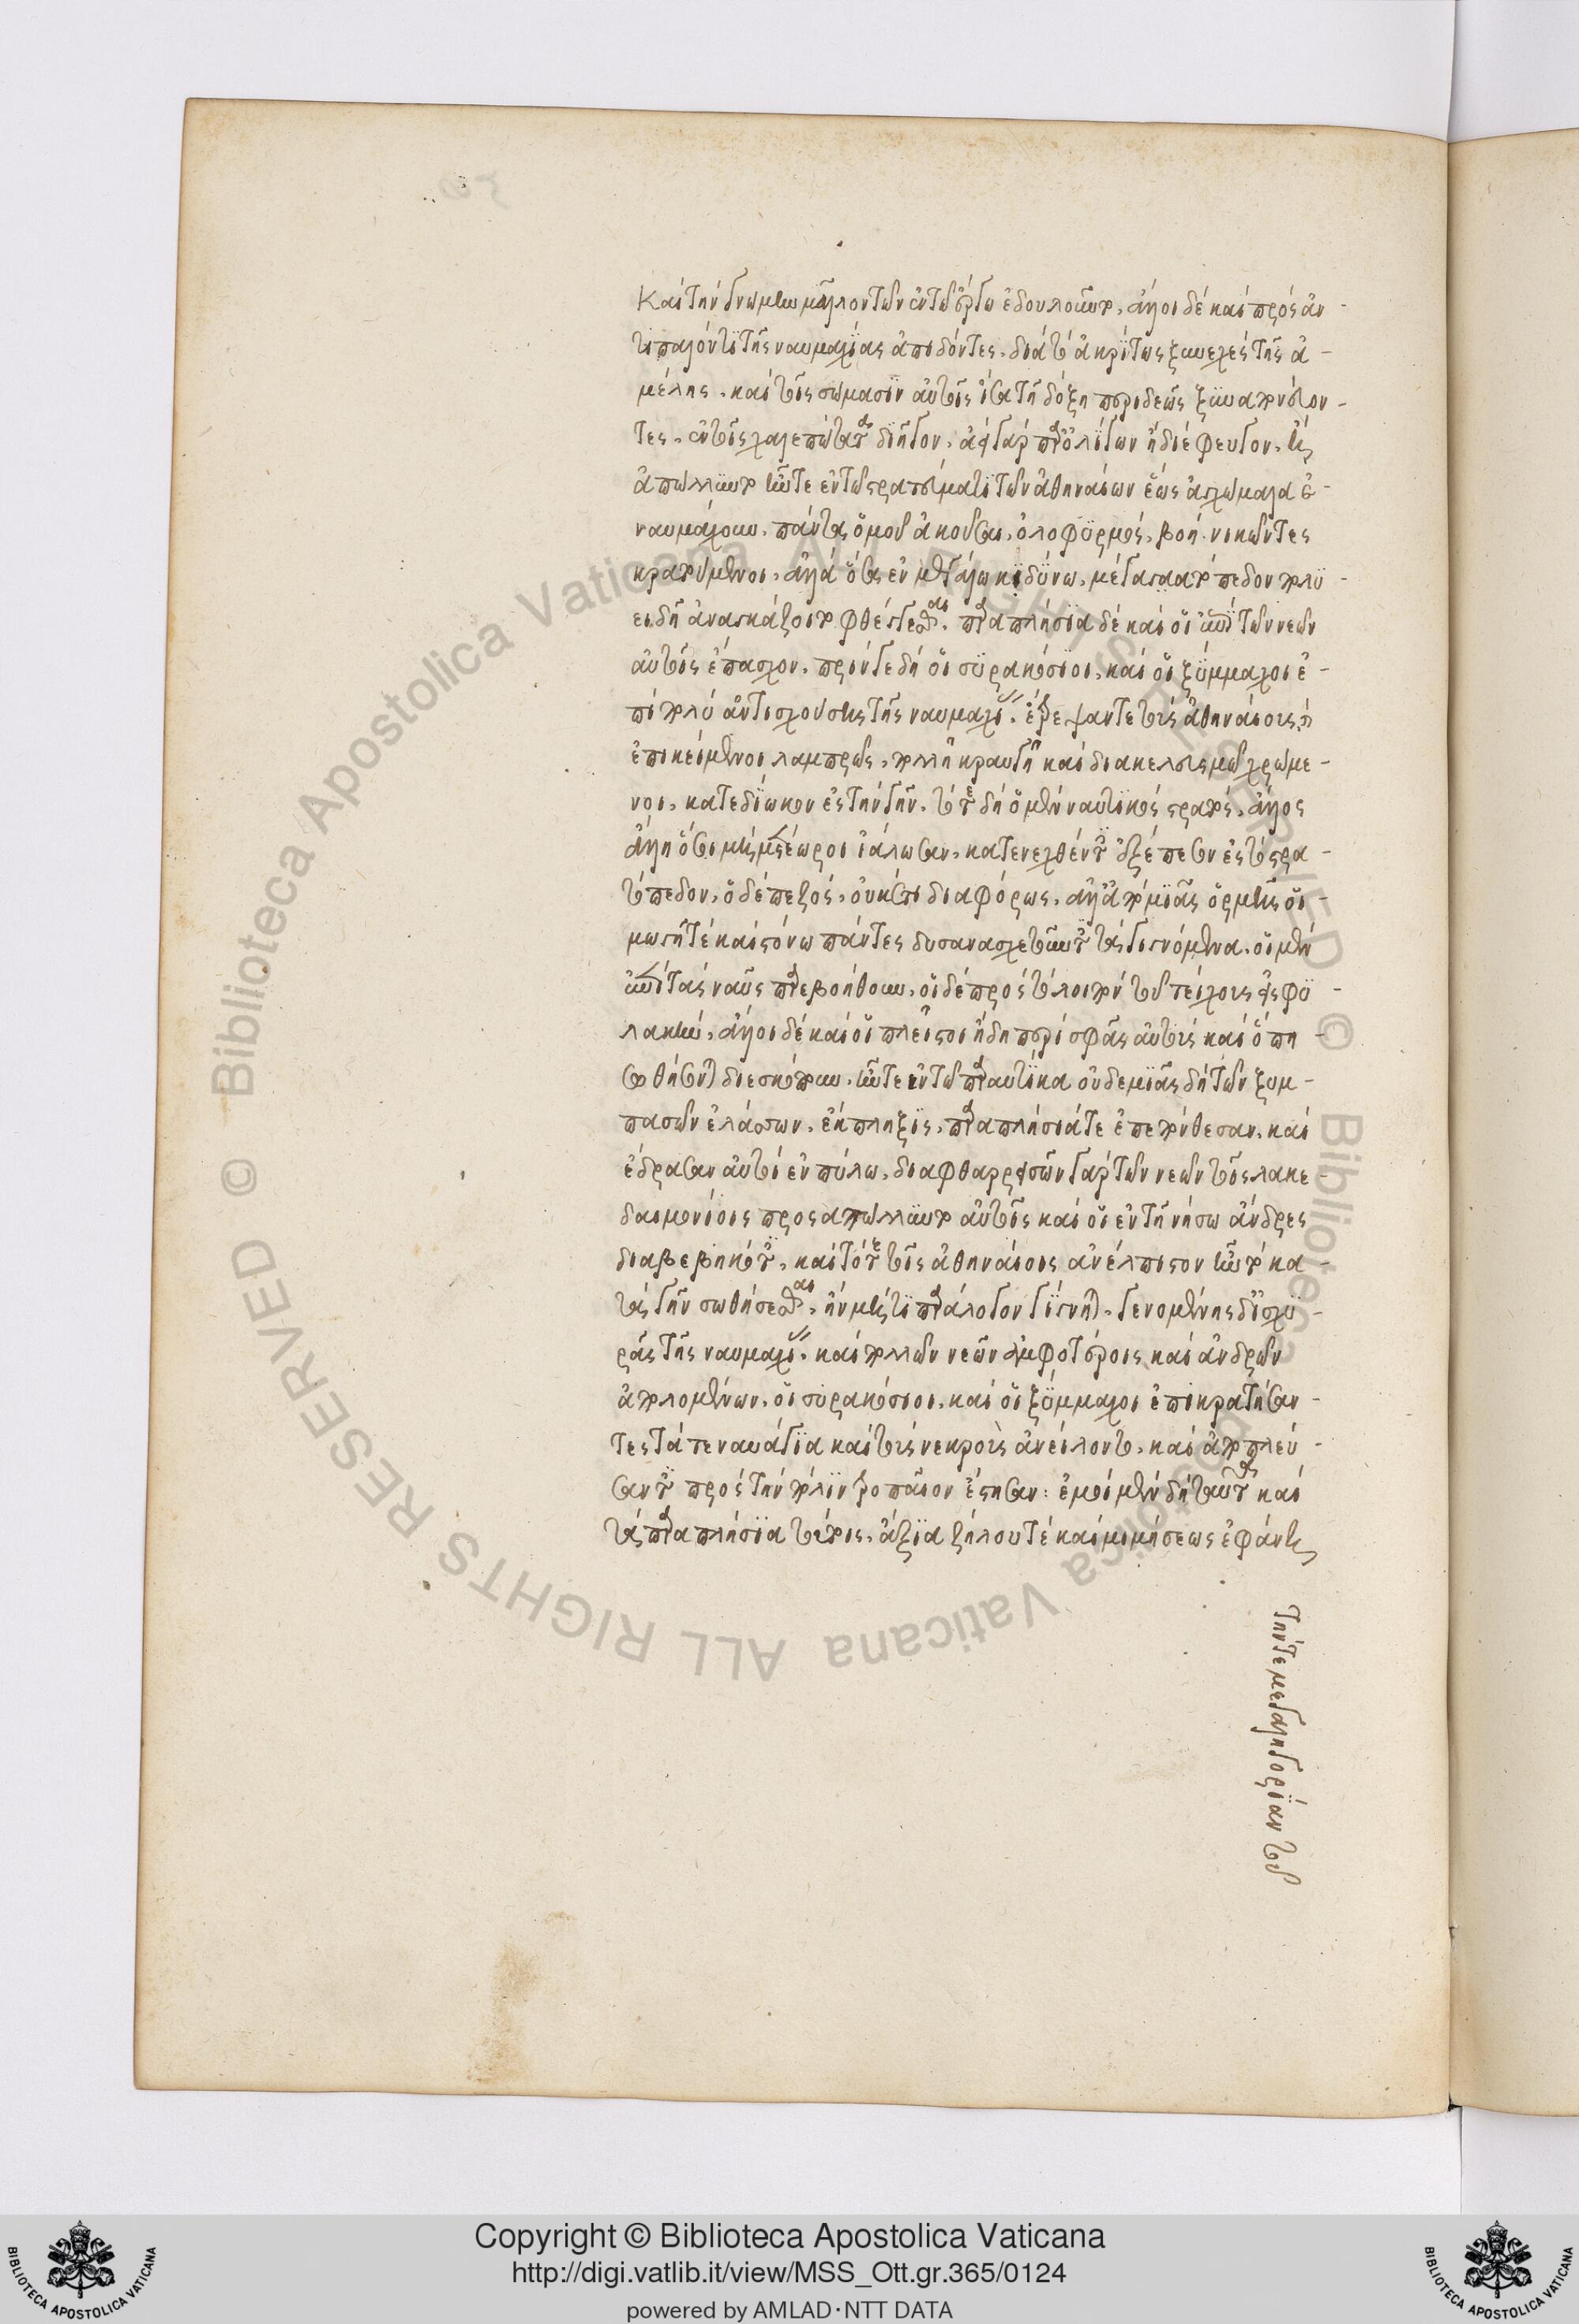 Καὶ τὴν γνώμην μᾶλλον τῶν ἐν τῷ ἔργῳ ἐδουλοῦντο, ἄλλοι δὲ καὶ πρὸς ἀν-
τιπαλόν τι τῆς ναυμαχίας ἀπιδόντες, διὰ τὸ ἀκρίτως ξυνεχὲς τῆς ἁ-
μέλης, καὶ τοῖς σώμασιν αὐτοῖς ἴσα τῇ δόξῃ περιδεῶς ξυναπονεύον-
τες, ἐν τοῖς χαλεπώτατα διῆγον, ἀεὶ γὰρ παρ' ὀλίγων ἢ διέφευγον, ἢ
ἀπώλλυντο ἦν τε ἐν τῷ στρατεύματι τῶν ἀθηναίων ἕως ἀγχώμαλα ἐ-
ναυμάχουν, πάντα ὁμοῦ ἀκοῦσαι, ὀλοφυρμός, βοή, νικῶντες
κρατούμενοι, ἀλλὰ ὅσα ἐν μεγάλῳ κινδύνῳ, μέγα στρατόπεδον πολυ-
ειδῆ ἀναγκάζοιτο φθέγγεσθαι. παραπλήσια δὲ καὶ οἱ ἐπὶ τῶν νεῶν
αὐτοῖς ἔπασχον, πρίν γε δὴ οἱ συρακόσιοι, καὶ οἱ ξύμμαχοι ἐ-
πὶ πολὺ ἀντισχούσης τῆς ναυμαχίας. ἔτρεψάν τε τοὺς ἀθηναίους καὶ
ἐπικείμενοι λαμπρῶς, πολλῇ κραυγῇ καὶ διακελευσμῷ χρώμε-
νοι, κατεδίωκον ἐς τὴν γῆν. τότε δὴ ὁ μὲν ναυτικὸς στρατός, ἄλλος
ἄλλῃ ὅσοι μὴ μετέωροι ἑάλωσαν, κατενεχθέντες ἐξέπεσον ἐς τὸ στρα-
τόπεδον, ὁ δὲ πεζός, οὐκέτι διαφόρως, ἀλλ' ἀπὸ μιᾶς ὁρμῆς οἰ-
μωγῇ τὲ καὶ στόνῳ πάντες δυσανασχετοῦντες τὰ γιγνόμενα, οἱ μὲν
ἐπὶ τὰς ναῦς παρεβοήθουν, οἱ δὲ πρὸς τὸ λοιπὸν τοῦ τείχους ἐς φυ-
λακήν, ἄλλοι δὲ καὶ οἱ πλεῖστοι ἤδη περὶ σφᾶς αὐτοὺς καὶ ὅπη
σωθήσονται διεσκόπουν, ἦν τε ἐν τῷ παραυτίκα οὐδεμιᾶς δὴ τῶν ξυμ-
πασῶν ἐλάσσων, ἔκπληξις, παραπλήσιά τε ἐπεπόνθεσαν, καὶ
ἔδρασαν αὐτοὶ ἐν πύλῳ, διαφθαρεισῶν γὰρ τῶν νεῶν τοῖς λακε-
δαιμονίοις προσαπώλλυντο αὐτοῖς καὶ οἱ ἐν τῇ νήσῳ ἄνδρες
διαβεβηκότες, καὶ τότε τοῖς ἀθηναίοις ἀνέλπιστον ἦν τὸ κα-
τὰ γῆν σωθήσεσθαι, ἢν μή τι παράλογον γίγνηται. γενομένης δ' ἰσχυ-
ρᾶς τῆς ναυμαχίας. καὶ πολλῶν νεῶν ἀμφοτέροις καὶ ἀνδρῶν
ἀπολομένων, οἱ συρακόσιοι, καὶ οἱ ξύμμαχοι ἐπικρατήσαν-
τες τά τε ναυάγια καὶ τοὺς νεκροὺς ἀνείλοντο, καὶ ἀποπλεύ-
σαντες πρὸς τὴν πόλιν τροπαῖον ἔστησαν: ἐμοὶ μὲν δὴ ταῦτα καὶ
τὰ παραπλήσια τούτοις, ἄξια ζήλου τὲ καὶ μιμήσεως ἐφάνη
τήν τε μεγαληγορίαν τοῦ
Copyright © Biblioteca Apostolica Vaticana
http://digi.vatlib.it/view/MSS_Ott.gr.365/0124
powered by AMLAD·NTT DATA
BIBLIOTECA APOSTOLICA VATICANA
BIBLIOTECA APOSTOLICA VATICANA
© Biblioteca Apostolica Vaticana ALL RIGHTS RESERVED © Biblioteca Apostolica Vaticana ALL RIGHTS RESERVED